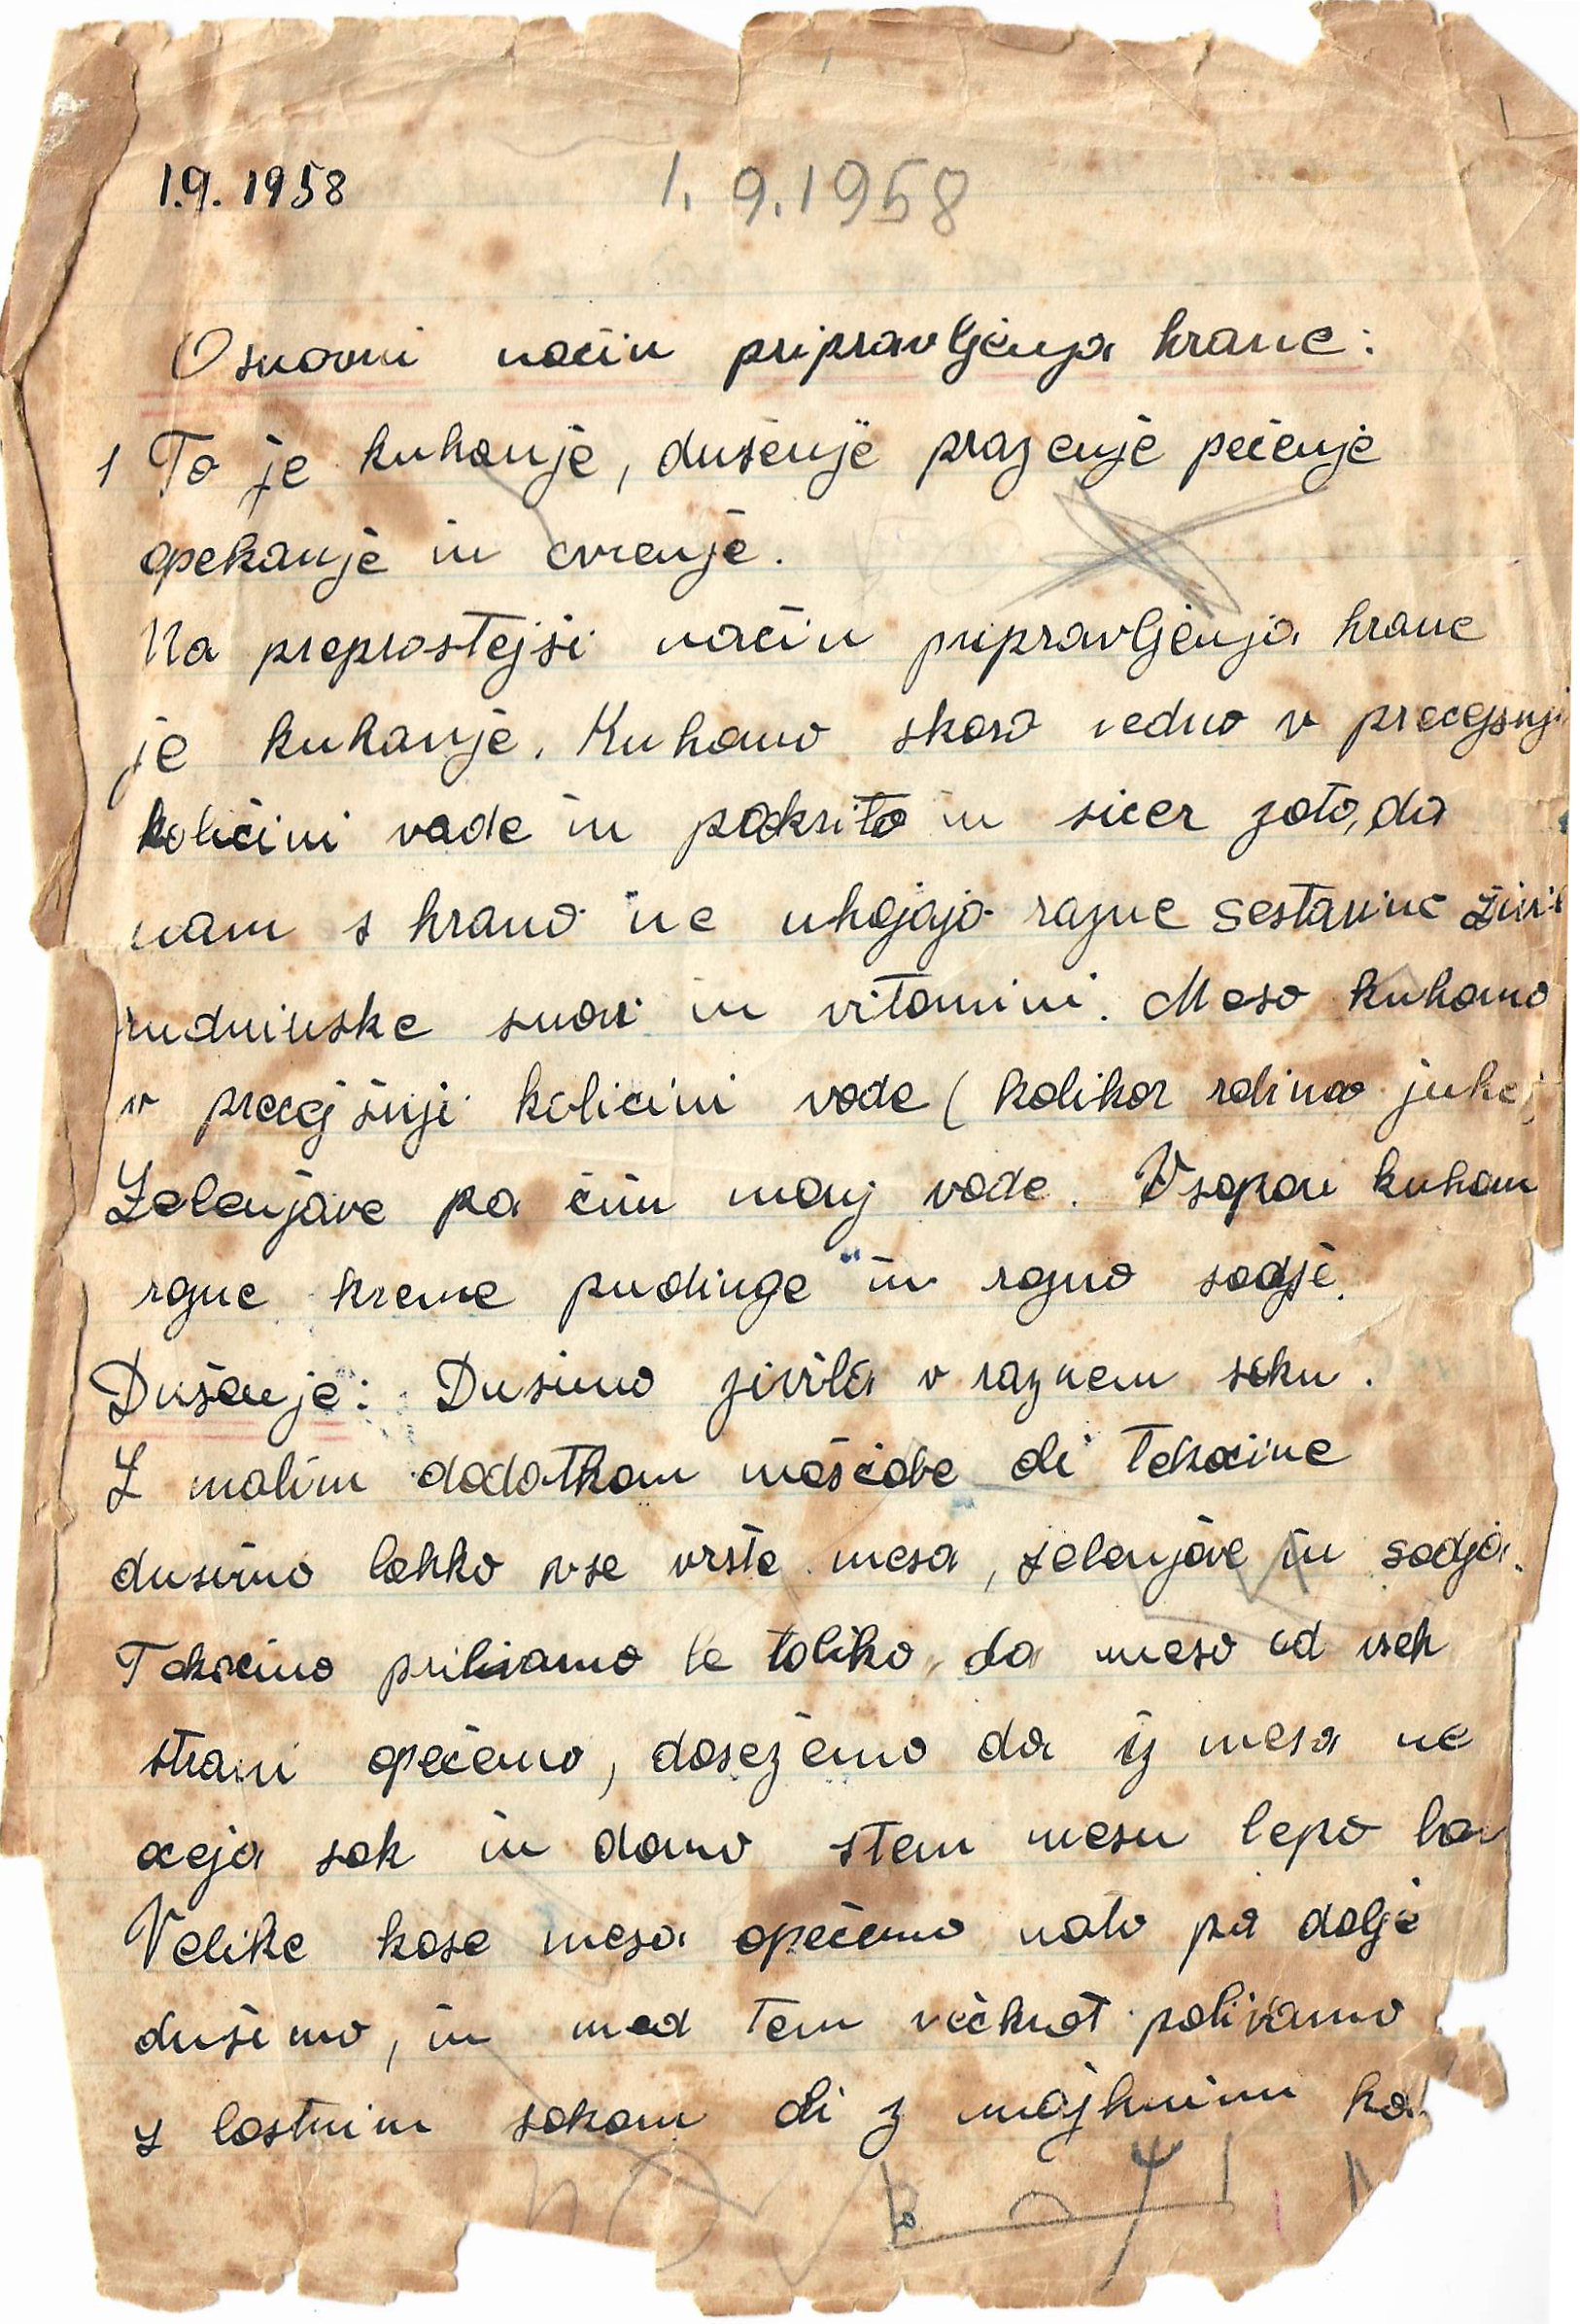 1.9.1958 1.9.1958
Osnovni način pripravljenja hrane:
1 To je kuhanje, dušenje prazenje pečenje
opekanje in cvrenje.
Na preprostejši način pripravljenja hrane
je kuhanje. Kuhamo skoro vedno v precejsnji
količini vode in pokrito in sicer zato, da
nam s hrano ne uhajajo razne sestavine živil
rudninske snovi in vitamini. Meso kuhamo
v precejšnji količini vode (kolikor rdimo juhe)
Zelenjave pa čim manj vode. V sopari kuham
rgne kreme pudinge in rgno sadje.
Dušenje: Dusimo zivila v raznem soku.
Z malim dodatkom maščobe ali tekočine
dusimo lahko vse vrste mesa, zelenjave in sadja.
Tekočino prilivamo le toliko, da meso od vseh
strani opečemo, dosežemo da iz mesa ne
oceja sok in damo stem mesu lepo bar
Velike kose mesa opečemo nato pa dalje
dušimo, in med tem večkrat polivamo
z lastnim sokom ali z majhnimi kol